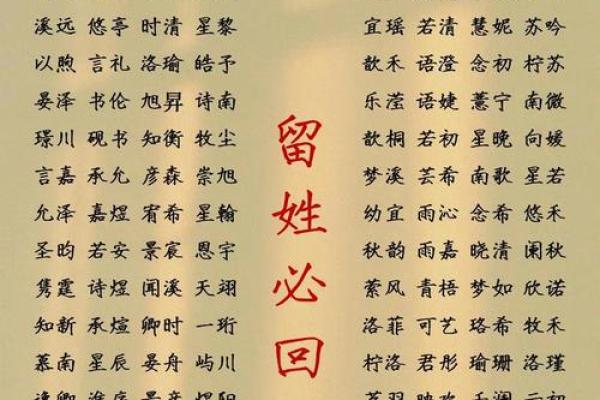 溪远 悠亭 时清 星黎
以煦 言礼 洛瑜 皓予
晏泽 书伦 旭昇 诗南
璟川 砚书 知衡 牧尘
言嘉 承允 彦森 崇旭
允泽 嘉煜 宥希 星翰
圣昀 若安 景宸 恩宇
隽霆 诗煜 闻溪 天翊
知新 承煊 卿时 一珩
慕南 星辰 晏舟 屿川
留姓必回
宜瑶 若清 慧妮 苏吟
歆禾 语澄 念初 柠苏
乐滢 语婕 薏宁 南微
歆桐 若初 星晚 向媛
梦溪 芸希 南歌 星若
幼宜 雨沁 念希 悠禾
秋韵 雨嘉 晓清 阑秋
萦风 青梧 梦如 欣诺
洛菲 可艺 珞希 牧禾
柠洛 君彤 瑜珊 洛瑾